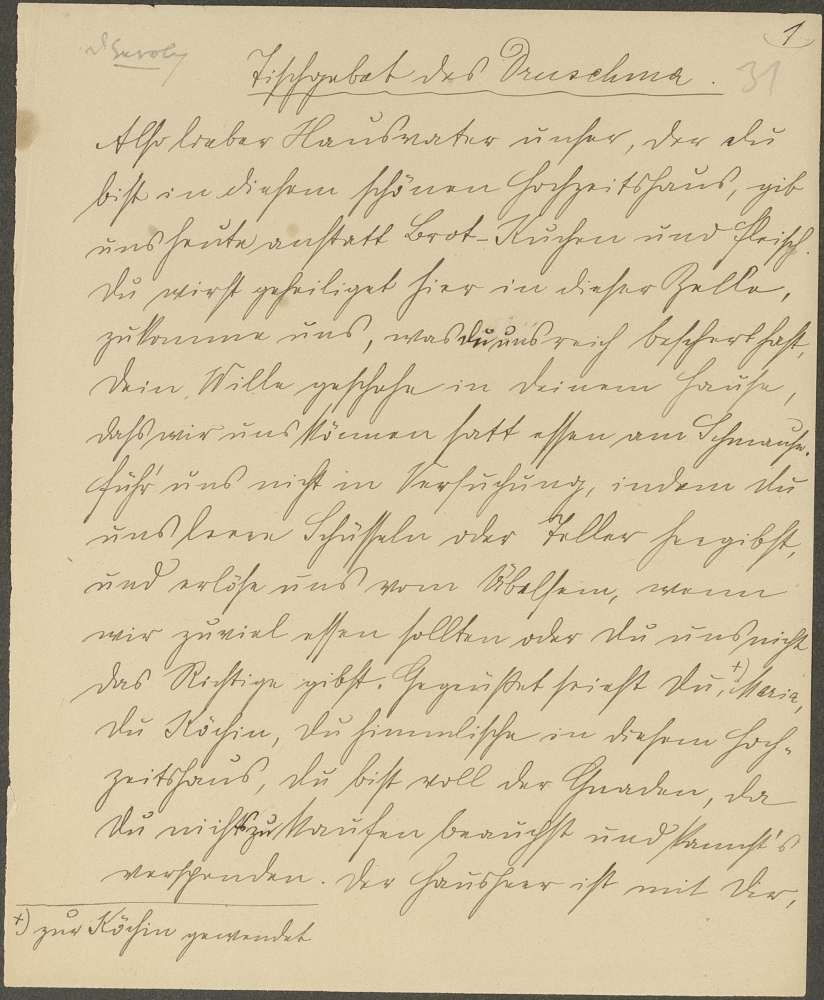 1
31
Tischgebet des Druschma.
Also lieber Hausvater unser, der du
bist in diesem schönen Hochzeitshaus, gib
uns heute anstatt Brot-Kuchen und Fleisch.
Du wirst geheiliget hier in dieser Zelle,
zukomme uns, was du uns reich beschert hast,
Dein Wille geschehe in deinem Hause,
dass wir uns können satt essen am Schmause.
Führ' uns nicht in Versuchung, indem du
uns leere Schüsseln oder Teller hergibst,
und erlöse uns vom Übelsein, wenn
wir zuviel essen sollten oder du uns nicht
das Richtige gibst. Gegrüßet seiest du, +) Maria,
du Köchin, du himmlische in diesem Hoch-
zeitshaus, du bist voll der Gnaden, da
du nichts zu kaufen brauchst und kannst's
verspenden. Der Hausherr ist mit dir,
+) zur Köchin gewendet